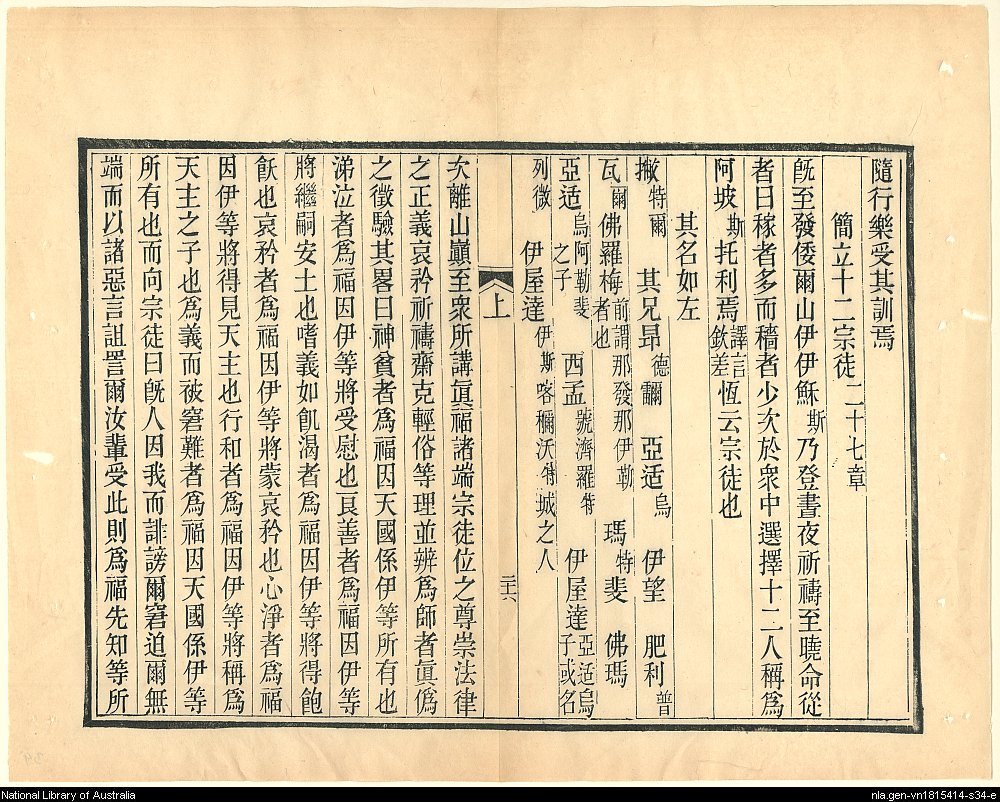 隨行樂受其訓焉
簡立十二宗徒二十七章
旣至發倭爾山伊伊穌斯乃登晝夜祈禱至曉命從
者曰稼者多而穡者少次於衆中選擇十二人稱爲
阿坡斯托利焉譯言欽差恆云宗徒也
其名如左
撇特爾 其兄昂德𤅢 亞适烏 伊望 肥利普
瓦爾佛羅梅前謂那發那伊勒者也 瑪特斐 佛瑪
亞适烏阿勒斐之子 西孟號濟羅特 伊屋達亞适烏子或名
列微 伊屋達伊斯喀穪沃特城之人
上
二十六
次離山巔至衆所講眞福諸端宗徒位之尊崇法律
之正義哀矜祈禱齋克輕俗等理並辨爲師者眞僞
之徵驗其畧曰神貧者爲福因天國係伊等所有也
涕泣者爲福因伊等將受慰也良善者爲福因伊等
將繼嗣安土也嗜義如飢渴者爲福因伊等將得飽
飫也哀矜者爲福因伊等將蒙哀矜也心淨者爲福
因伊等將得見天主也行和者爲福因伊等將稱爲
天主之子也爲義而被窘難者爲福因天國係伊等
所有也而向宗徒曰旣人因我而誹謗爾窘迫爾無
端而以諸惡言詛詈爾汝輩受此則爲福先知等所
National Library of Australia
nla.gen-vn1815414-s34-e